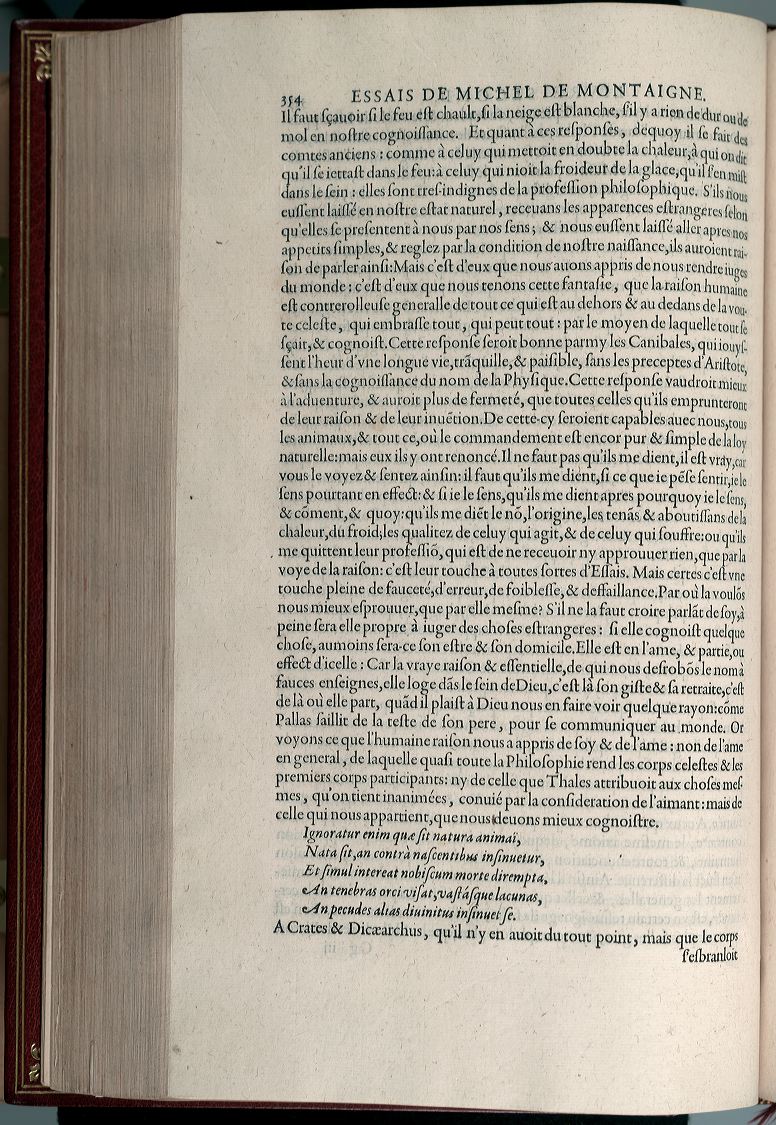 354 ESSAIS DE MICHEL DE MONTAIGNE.
Il faut ſçauoir ſi le feu eſt chault, ſi la neige eſt blanche, s'il y a rien de dur ou de
mol en noſtre cognoiſſance. Et quant à ces reſponſes, dequoy il ſe fait des
comtes anciens : comme à celuy qui mettoit en doubte la chaleur, à qui on dit
qu'il ſe iettaſt dans le feu: à celuy qui nioit la froideur de la glace, qu'il s'en miſt
dans le ſein : elles ſont treſ-indignes de la profeſſion philoſophique. S'ils nous
euſſent laiſſé en noſtre eſtat naturel, receuans les apparences eſtrangeres ſelon
qu'elles ſe preſentent à nous par nos ſens; & nous euſſent laiſſé aller apres nos
appetits ſimples, & reglez par la condition de noſtre naiſſance, ils auroient rai-
ſon de parler ainſi: Mais c'eſt d'eux que nous auons appris de nous rendre iuges
du monde : c'eſt d'eux que nous tenons cette fantaſie, que la raiſon humaine
eſt contrerolleuſe generalle de tout ce qui eſt au dehors & au dedans de la vou-
te celeſte, qui embraſſe tout, qui peut tout : par le moyen de laquelle tout ſe
ſçait, & cognoiſt. Cette reſponſe ſeroit bonne parmy les Canibales, qui iouyſ-
ſent l'heur d'vne longue vie, trãquille, & paiſible, ſans les preceptes d'Ariſtote,
& ſans la cognoiſſance du nom de la Phyſique. Cette reſponſe vaudroit mieux
à l'aduenture, & auroit plus de fermeté, que toutes celles qu'ils emprunteront
de leur raiſon & de leur inuẽtion. De cette-cy ſeroient capables auec nous, tous
les animaux, & tout ce, où le commandement eſt encor pur & ſimple de la loy
naturelle: mais eux ils y ont renoncé. Il ne faut pas qu'ils me dient, il eſt vray, car
vous le voyez & ſentez ainſin: il faut qu'ils me dient, ſi ce que ie pẽſe ſentir, ie le
ſens pourtant en effect: & ſi ie le ſens, qu'ils me dient apres pourquoy ie le ſens,
& cõment, & quoy: qu'ils me diẽt le nõ, l'origine, les tenãs & aboutiſſans de la
chaleur, du froid; les qualitez de celuy qui agit, & de celuy qui ſouffre: ou qu'ils
me quittent leur profeſſiõ, qui eſt de ne receuoir ny approuuer rien, que par la
voye de la raiſon: c'eſt leur touche à toutes ſortes d'Eſſais. Mais certes c'eſt vne
touche pleine de fauceté, d'erreur, de foibleſſe, & deffaillance. Par où la voulõs
nous mieux eſprouuer, que par elle meſme? S'il ne la faut croire parlãt de ſoy, à
peine ſera elle propre à iuger des choſes eſtrangeres : ſi elle cognoiſt quelque
choſe, aumoins ſera-ce ſon eſtre & ſon domicile. Elle eſt en l'ame, & partie, ou
effect d'icelle : Car la vraye raiſon & eſſentielle, de qui nous deſrobõs le nom à
fauces enſeignes, elle loge dãs le ſein de Dieu, c'eſt là ſon giſte & ſa retraite, c'eſt
de là où elle part, quãd il plaiſt à Dieu nous en faire voir quelque rayon: cõme
Pallas ſaillit de la teſte de ſon pere, pour ſe communiquer au monde. Or
voyons ce que l'humaine raiſon nous a appris de ſoy & de l'ame : non de l'ame
en general, de laquelle quaſi toute la Philoſophie rend les corps celeſtes & les
premiers corps participants: ny de celle que Thales attribuoit aux choſes meſ-
mes, qu'on tient inanimées, conuié par la conſideration de l'aimant: mais de
celle qui nous appartient, que nous deuons mieux cognoiſtre.
Ignoratur enim quæ ſit natura animai,
Nata ſit, an contrà naſcentibus inſinuetur,
Et ſimul intereat nobiſcum morte dirempta,
An tenebras orci viſat, vaſtáſque lacunas,
An pecudes alias diuinitus inſinuet ſe.
A Crates & Dicæarchus, qu'il n'y en auoit du tout point, mais que le corps
s'eſbranloit